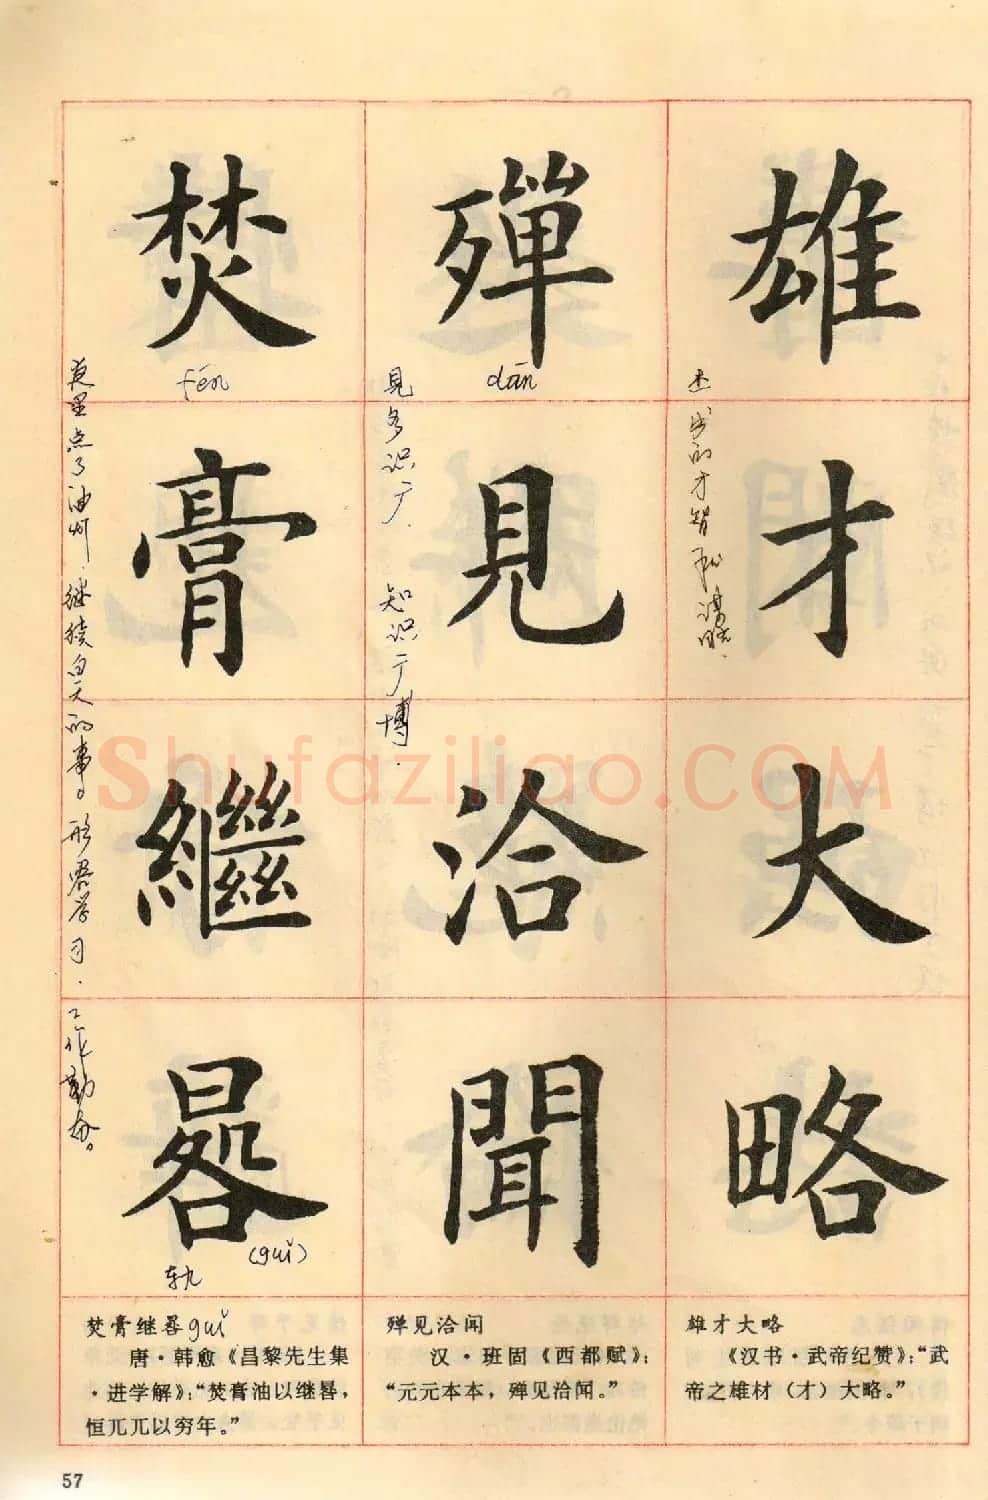 雄才大略
杰出的才智和谋略.
殫見洽聞
dān
見多识广. 知识广博.
焚膏繼晷
fén
(guǐ)
轨
夜里点了油灯, 继续白天的事。形容学习. 工作勤奋。
Shufaziliao.COM
雄才大略
《汉书·武帝纪赞》:“武
帝之雄材（才）大略。”
殚见洽闻
汉·班固《西都赋》:
“元元本本，殚见洽闻。”
焚膏继晷guǐ
唐·韩愈《昌黎先生集
·进学解》:“焚膏油以继晷，
恒兀兀以穷年。”
57